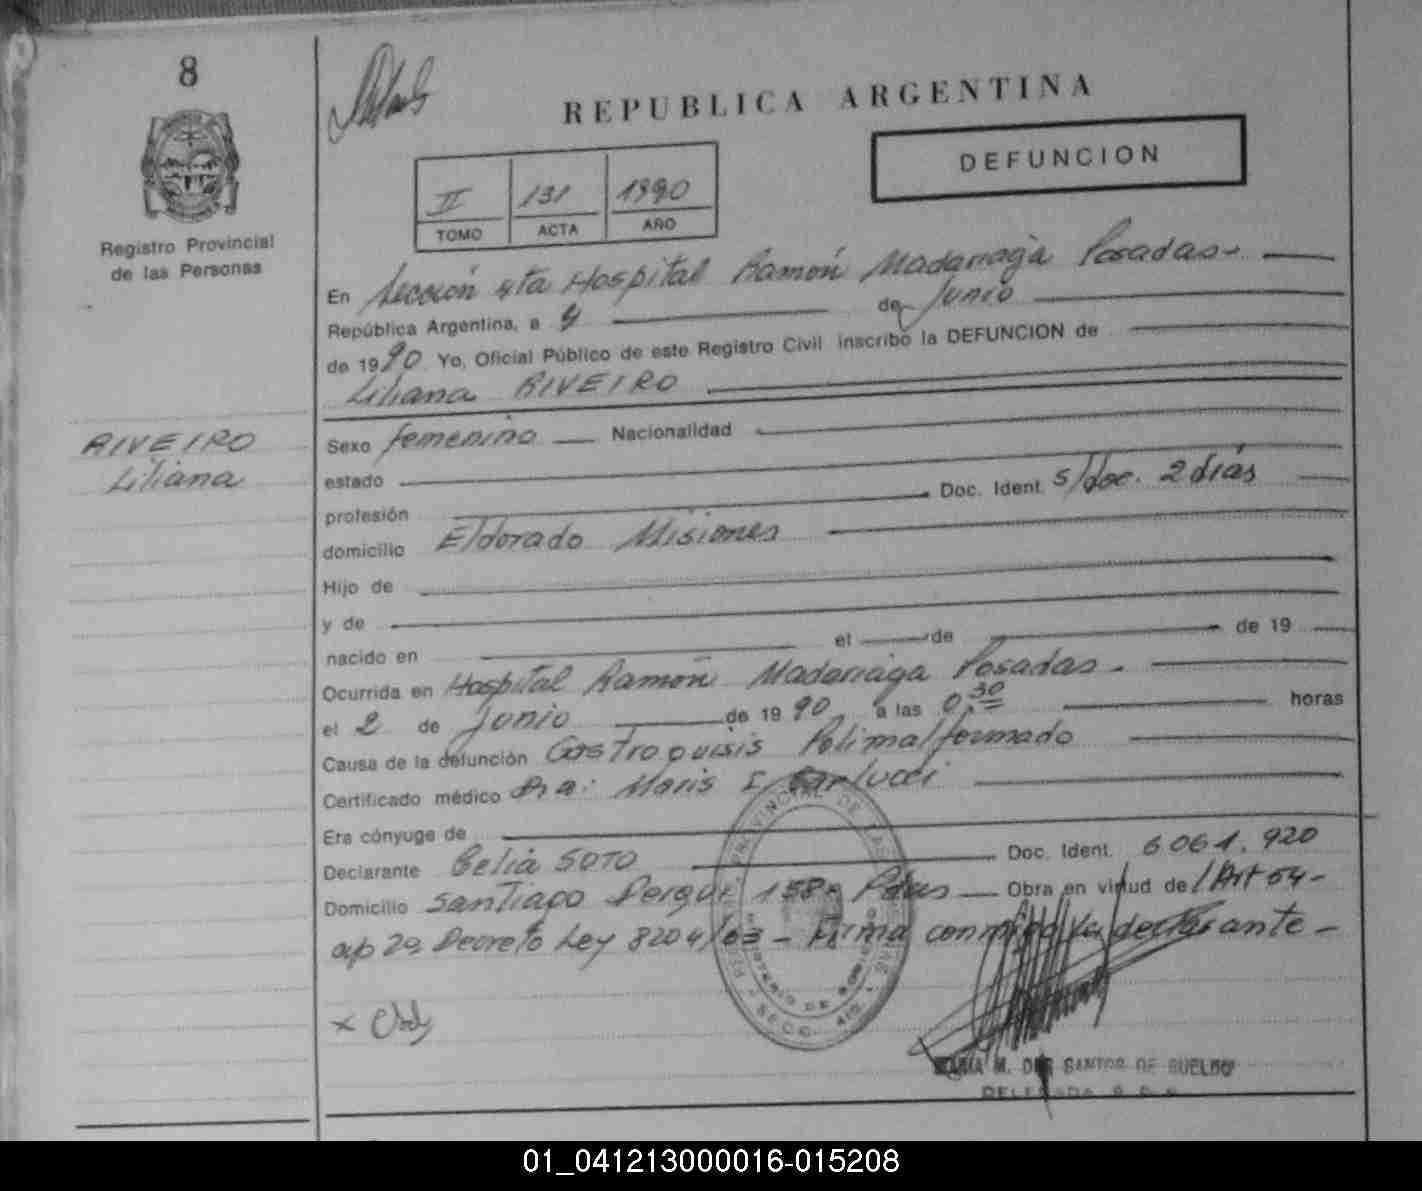 8
REPUBLICA ARGENTINA
DEFUNCION
II 131 1990
TOMO ACTA AÑO
Registro Provincial
de las Personas
En Sección 4ta Hospital Ramón Madariaga Posadas.-
República Argentina, a 4 de Junio
de 1990 Yo, Oficial Público de este Registro Civil inscribo la DEFUNCION de
Liliana RIVEIRO
RIVEIRO
Liliana
Sexo femenino Nacionalidad
estado
profesión Doc. Ident. s/doc. 2 días
domicilio Eldorado Misiones
Hijo de
y de
nacido en el de de 19
Ocurrida en Hospital Ramón Madariaga Posadas.-
el 2 de Junio de 1990 a las 0,30 horas
Causa de la defunción Gastroquisis Polimalformado
Certificado médico Dra: Maris I. Carlucci
Era cónyuge de
Declarante Celia SOTO Doc. Ident. 6061.920
Domicilio Santiago Derqui 158 Pdas Obra en virtud del Art 54-
ap 2º Decreto Ley 8204/63 - Firma conmigo la declarante -
x
MARIA M. DOS SANTOS DE SUELDO
DELEGADA
01_041213000016-015208